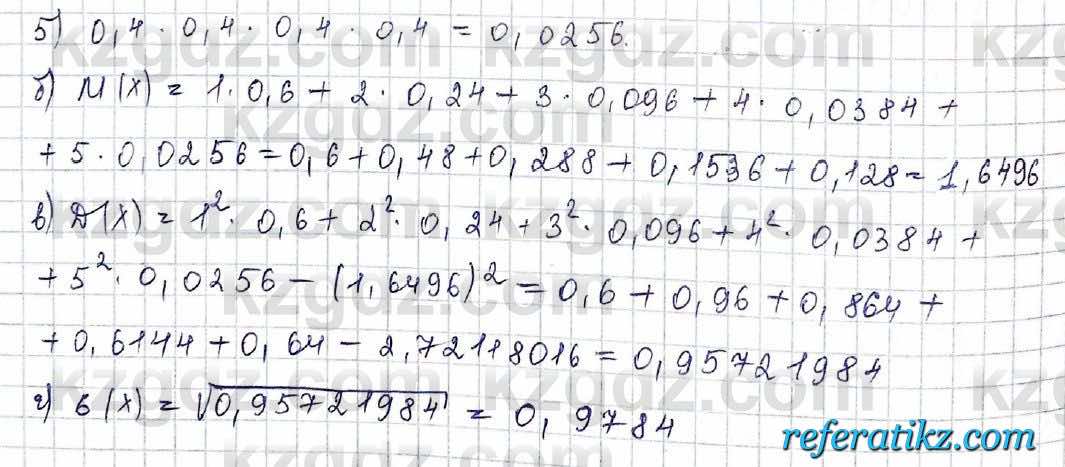 5) 0,4 · 0,4 · 0,4 · 0,4 = 0,0256.
б) М(X) = 1 · 0,6 + 2 · 0,24 + 3 · 0,096 + 4 · 0,0384 +
+ 5 · 0,0256 = 0,6 + 0,48 + 0,288 + 0,1536 + 0,128 = 1,6496
в) Д(X) = 1² · 0,6 + 2² · 0,24 + 3² · 0,096 + 4² · 0,0384 +
+ 5² · 0,0256 – (1,6496)² = 0,6 + 0,96 + 0,864 +
+ 0,6144 + 0,64 – 2,72118016 = 0,95721984
г) б(X) = √0,95721984 = 0,9784
referatikz.com